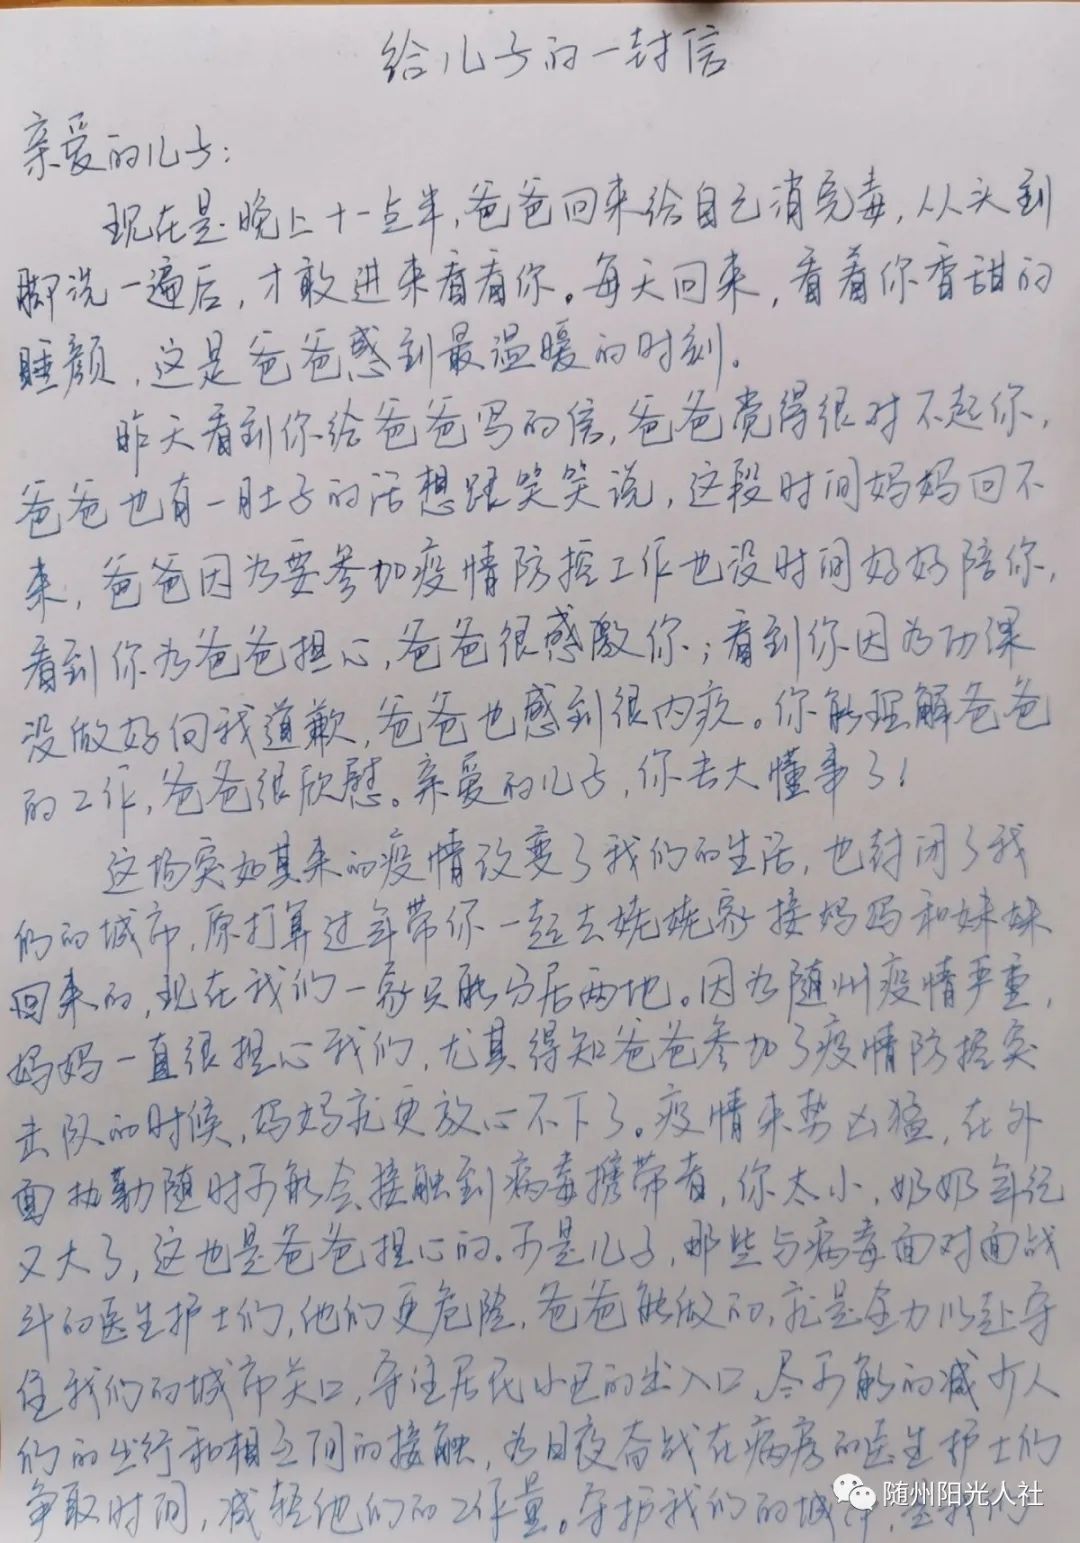 给儿子的一封信
亲爱的儿子：
现在是晚上十一点半，爸爸回来给自己消完毒，从头到
脚洗一遍后，才敢进来看看你。每天回来，看着你香甜的
睡颜，这是爸爸感到最温暖的时刻。
昨天看到你给爸爸写的信，爸爸觉得很对不起你，
爸爸也有一肚子的话想跟笑笑说，这段时间妈妈回不
来，爸爸因为要参加疫情防控工作也没时间好好陪你，
看到你为爸爸担心，爸爸很感激你；看到你因为功课
没做好向我道歉，爸爸也感到很内疚。你能理解爸爸
的工作，爸爸很欣慰。亲爱的儿子，你长大懂事了！
这场突如其来的疫情改变了我们的生活，也封闭了我
们的城市，原打算过年带你一起去姥姥家接妈妈和妹妹
回来的，现在我们一家只能分居两地。因为随州疫情严重，
妈妈一直很担心我们，尤其得知爸爸参加了疫情防控突
击队的时候，妈妈就更放心不下了。疫情来势凶猛，在外
面执勤随时可能会接触到病毒携带者，你太小，奶奶年纪
又大了，这也是爸爸担心的。可是儿子，那些与病毒面对面战
斗的医生护士们，他们更危险，爸爸能做的，就是全力以赴守
住我们的城市关口，守住居民小区的出入口，尽可能的减少人
们的出行和相互间的接触，为日夜奋战在病房的医生护士们
争取时间，减轻他们的工作量。守护我们的城市，是我们
随州阳光人社